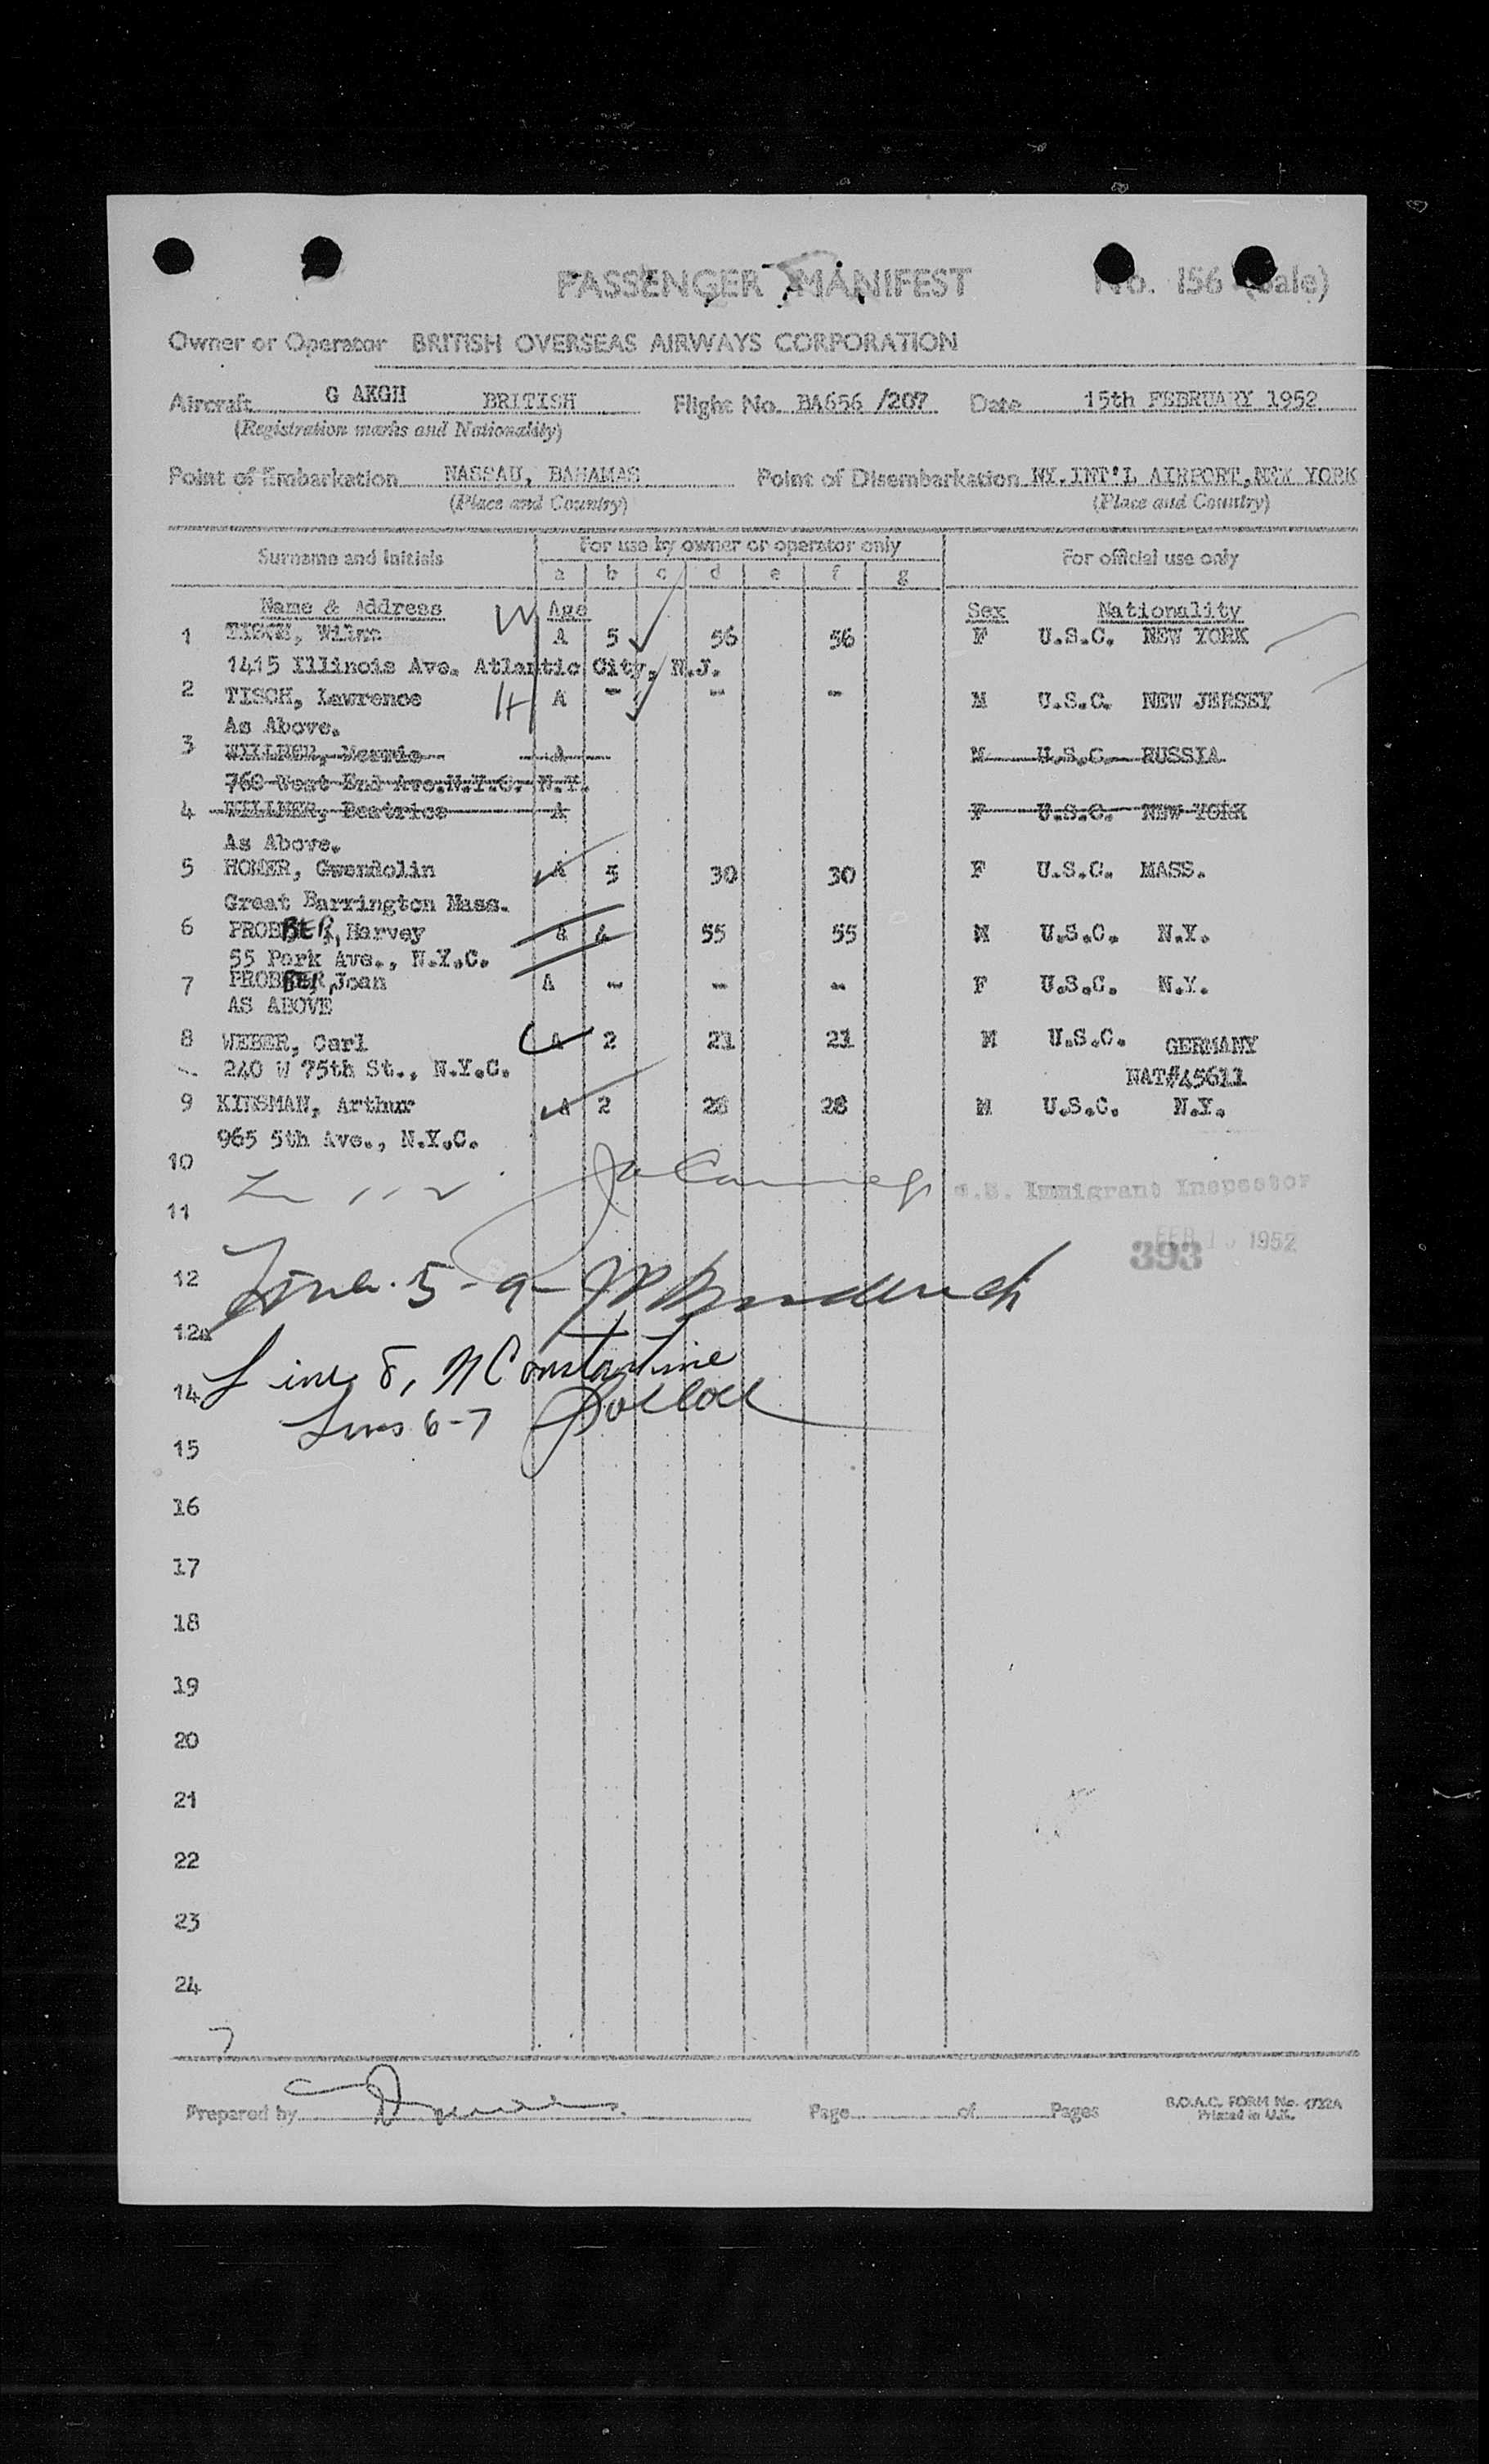 PASSENGER MANIFEST No. 156
Owner or Operator BRITISH OVERSEAS AIRWAYS CORPORATION
Aircraft G AKGH BRITISH Flight No. BA656 /207 Date 15th FEBRUARY 1952
(Registration marks and Nationality)
Point of Embarkation NASSAU, BAHAMAS Point of Disembarkation NY.INT'L AIRPORT,NEW YORK
(Place and Country) (Place and Country)
Surname and Initials For use by owner or operator only For official use only
a b c d e f g
Name & Address Age Sex Nationality
1 TISCH, Wilma W A 5 56 56 F U.S.C. NEW YORK
1415 Illinois Ave. Atlantic City, N.J.
2 TISCH, Lawrence H A - - - M U.S.C. NEW JERSEY
As Above.
3 WILLNER, A M U.S.C. RUSSIA
760 West End Ave.N.Y.C. N.Y.
4 WILLNER, Beatrice A F U.S.C. NEW YORK
As Above.
5 HOMER, Gwendolin A 5 30 30 F U.S.C. MASS.
Great Barrington Mass.
6 PROBBER, Harvey a 4 55 55 M U.S.C. N.Y.
55 Park Ave., N.Y.C.
7 PROBBER, Joan A - - - F U.S.C. N.Y.
AS ABOVE
8 WEBER, Carl A 2 21 21 M U.S.C. GERMANY
240 W 75th St., N.Y.C. NAT#45611
9 KINSMAN, Arthur A 2 28 28 M U.S.C. N.Y.
965 5th Ave., N.Y.C.
10
U.S. Immigrant Inspector
11
FEB 1952
393
12 Line 5-9-
12a
Line 8, N Constantine
14
Lines 6-7
15
16
17
18
19
20
21
22
23
24
7
Prepared by Page of Pages B.O.A.C. FORM No. 1722A
Printed in U.K.